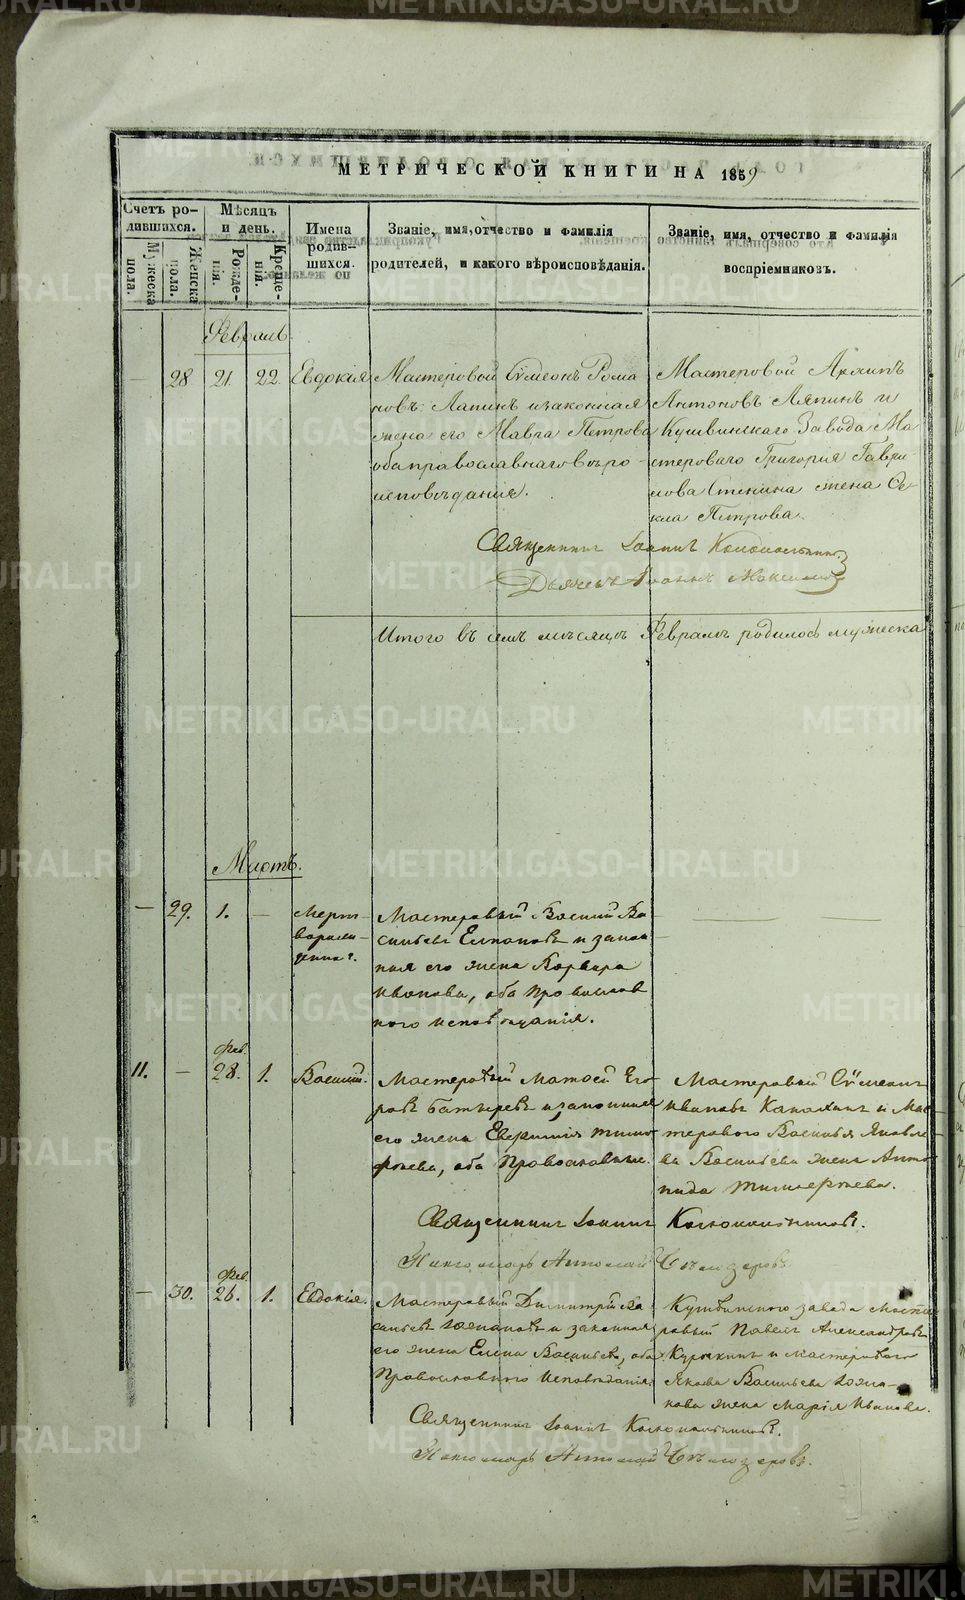 МЕТРИЧЕСКОЙ КНИГИ НА 1859
Счетъ ро-
дившихся.
Мужеска
пола.
Женска
пола.
Мѣсяцъ
и день.
Рожде-
нія.
Креще-
нія.
Имена
родив-
шихся.
Званіе, имя, отчество и фамилія
родителей, и какого вѣроисповѣданія.
Званіе, имя, отчество и фамилія
воспріемниковъ.
Февраль
— 28 21. 22. Евдокія
Мастеровой Сѵмеонъ Рома
новъ Лапинъ и законная
жена его Мавра Петрова
оба православнаго вѣро-
исповѣданія.
Мастеровой Архипъ
Антоновъ Ляпинъ и
Кушвинскаго Завода Ма
стероваго Григорія Гаври-
лова Стенина жена Ѳе-
кла Петрова.
Священникъ Іоаннъ
Дьячекъ Іоаннъ
Итого въ семъ мѣсяцѣ Февралѣ родилось мужеска
Мартъ.
— 29. 1. —
Мерт-
ворож-
Мастеровый Василій Ва-
сильевъ и закон-
ная его жена Варвара
Иванова, оба православ
наго исповѣданія.
Фев.
11. — 28. 1. Василій.
Мастеровый Матѳей Его
ровъ Батыревъ и законная
его жена Тимо
ѳеева, оба православные.
Мастеровый Сѵмеонъ
Ивановъ и Мас-
тероваго Василья Яковле-
ва Васильева жена Анто-
нида
Священникъ Іоаннъ
Пономарь
Фев.
— 30. 26. 1. Евдокія.
Мастеровый Димитрій Ва-
сильевъ и законная
его жена Елена Васильева, оба
Православнаго исповѣданія.
Кушвинскаго завода масте
ровый Павелъ Александровъ
и мастероваго
Якова Васильева
жена Марія Иванова.
Священникъ Іоаннъ
Пономарь
METRIKI.GASO-URAL.RU